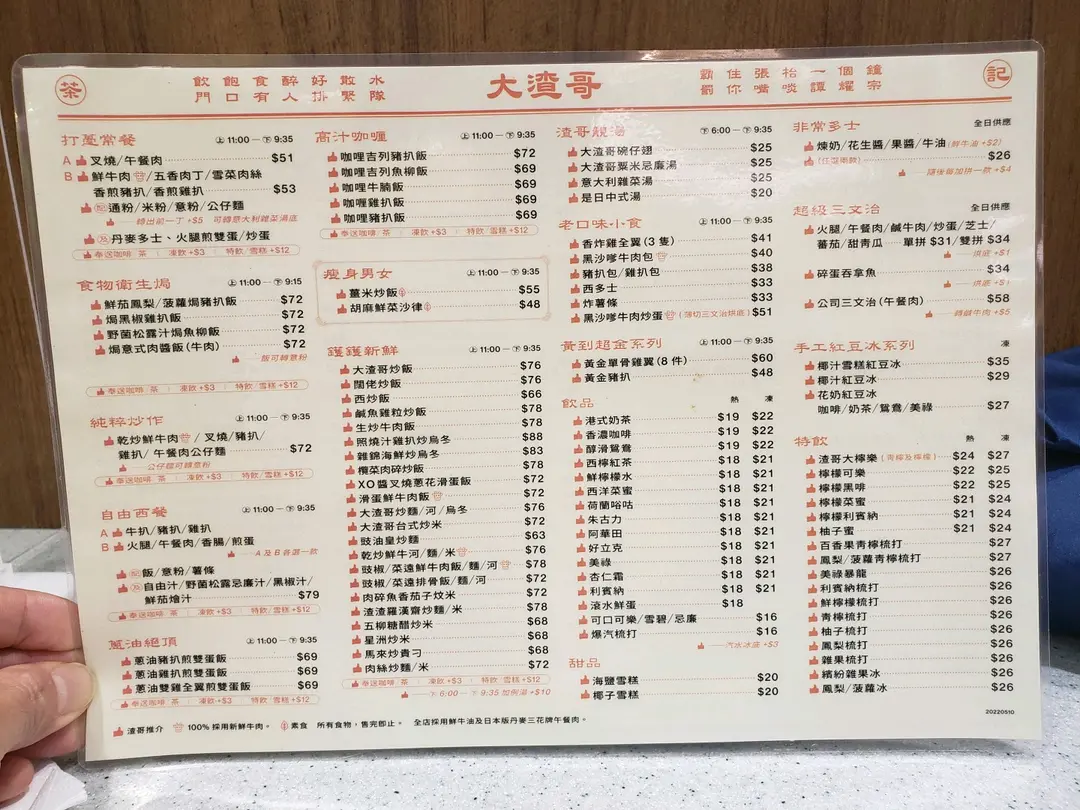 茶
飲飽食醉好散水
門口有人排緊隊
大渣哥
霸住張枱一個鐘
罰你嘴啖譚耀宗
記
打躉常餐 上 11:00 — 下 9:35
A 叉燒/午餐肉 $51
B 鮮牛肉/五香肉丁/雪菜肉絲
香煎豬扒/香煎雞扒 $53
配 通粉/米粉/意粉/公仔麵
轉出前一丁 +$5 可轉意大利雜菜湯底
丹麥多士、火腿煎雙蛋/炒蛋
奉送咖啡/茶 | 凍飲 +$3 | 特飲/雪糕 +$12
食物衛生焗 上 11:00 — 下 9:15
鮮茄鳳梨/菠蘿焗豬扒飯 $72
焗黑椒雞扒飯 $72
野菌松露汁焗魚柳飯 $72
焗意式肉醬飯(牛肉) $72
飯可轉意粉
奉送咖啡/茶 | 凍飲 +$3 | 特飲/雪糕 +$12
純粹炒作 上 11:00 — 下 9:35
乾炒鮮牛肉/叉燒/豬扒/
雞扒/午餐肉公仔麵 $72
公仔麵可轉意粉
奉送咖啡/茶 | 凍飲 +$3 | 特飲/雪糕 +$12
自由西餐 上 11:00 — 下 9:35
A 牛扒/豬扒/雞扒
B 火腿/午餐肉/香腸/煎蛋
A 及 B 各選一款
配 飯/意粉/薯條
自由汁/野菌松露忌廉汁/黑椒汁/
鮮茄燴汁 $79
奉送咖啡/茶 | 凍飲 +$3 | 特飲/雪糕 +$12
蔥油絕頂 上 11:00 — 下 9:35
蔥油豬扒煎雙蛋飯 $69
蔥油雞扒煎雙蛋飯 $69
蔥油雙雞全翼煎雙蛋飯 $69
奉送咖啡/茶 | 凍飲 +$3 | 特飲/雪糕 +$12
高汁咖喱 上 11:00 — 下 9:35
咖喱吉列豬扒飯 $72
咖喱吉列魚柳飯 $69
咖喱牛腩飯 $69
咖喱雞扒飯 $69
咖喱豬扒飯 $69
奉送咖啡/茶 | 凍飲 +$3 | 特飲/雪糕 +$12
瘦身男女 上 11:00 — 下 9:35
薑米炒飯 $55
胡麻鮮菜沙律 $48
鑊鑊新鮮 上 11:00 — 下 9:35
大渣哥炒飯 $76
闊佬炒飯 $76
西炒飯 $66
鹹魚雞粒炒飯 $78
生炒牛肉飯 $78
照燒汁雞扒炒烏冬 $88
雜錦海鮮炒烏冬 $83
欖菜肉碎炒飯 $78
XO醬叉燒蔥花滑蛋飯 $72
滑蛋鮮牛肉飯 $72
大渣哥炒麵/河/烏冬 $76
大渣哥台式炒米 $72
豉油皇炒麵 $63
乾炒鮮牛河/麵/米 $76
豉椒/菜遠鮮牛肉飯/麵/河 $78
豉椒/菜遠排骨飯/麵/河 $72
肉碎魚香茄子炆米 $72
渣渣羅漢齋炒麵/米 $78
五柳糖醋炒米 $68
星洲炒米 $68
馬來炒貴刁 $68
肉絲炒麵/米 $72
奉送咖啡/茶 | 凍飲 +$3 | 特飲/雪糕 +$12
下 6:00 — 下 9:35 加例湯 +$10
渣哥靚湯 下 6:00 — 下 9:35
大渣哥碗仔翅 $25
大渣哥粟米忌廉湯 $25
意大利雜菜湯 $25
是日中式湯 $20
老口味小食 上 11:00 — 下 9:35
香炸雞全翼(3 隻) $41
黑沙嗲牛肉包 $40
豬扒包/雞扒包 $38
西多士 $33
炸薯條 $33
黑沙嗲牛肉炒蛋(薄切三文治烘底) $51
黃到超金系列 上 11:00 — 下 9:35
黃金單骨雞翼(8 件) $60
黃金豬扒 $48
飲品 熱 凍
港式奶茶 $19 $22
香濃咖啡 $19 $22
醇滑鴛鴦 $19 $22
西檸紅茶 $18 $21
鮮檸檬水 $18 $21
西洋菜蜜 $18 $21
荷蘭谷咕 $18 $21
朱古力 $18 $21
阿華田 $18 $21
好立克 $18 $21
美祿 $18 $21
杏仁霜 $18 $21
利賓納 $18 $21
滾水鮮蛋 $18
可口可樂/雪碧/忌廉 $16
爆汽梳打 $16
汽水冰底 +$3
甜品
海鹽雪糕 $20
椰子雪糕 $20
非常多士 全日供應
煉奶/花生醬/果醬/牛油(鮮牛油 +$2)
(任選兩款) $26
隨後每加拼一款 +$4
超級三文治 全日供應
火腿/午餐肉/鹹牛肉/炒蛋/芝士/
蕃茄/甜青瓜 單拼 $31/雙拼 $34
烘底 +$1
碎蛋吞拿魚 $34
烘底 +$1
公司三文治(午餐肉) $58
轉鹹牛肉 +$5
手工紅豆冰系列 凍
椰汁雪糕紅豆冰 $35
椰汁紅豆冰 $29
花奶紅豆冰
咖啡/奶茶/鴛鴦/美祿 $27
特飲 熱 凍
渣哥大檸樂(青檸及檸檬) $24 $27
檸檬可樂 $22 $25
檸檬黑啡 $22 $25
檸檬菜蜜 $21 $24
檸檬利賓納 $21 $24
柚子蜜 $21 $24
百香果青檸梳打 $27
鳳梨/菠蘿青檸梳打 $27
美祿暴龍 $26
利賓納梳打 $26
鮮檸檬梳打 $26
青檸梳打 $26
柚子梳打 $26
鳳梨梳打 $26
雜果梳打 $26
繽紛雜果冰 $26
鳳梨/菠蘿冰 $26
渣哥推介 100% 採用新鮮牛肉。 素食 所有食物,售完即止。 全店採用鮮牛油及日本版丹麥三花牌午餐肉。
20220510